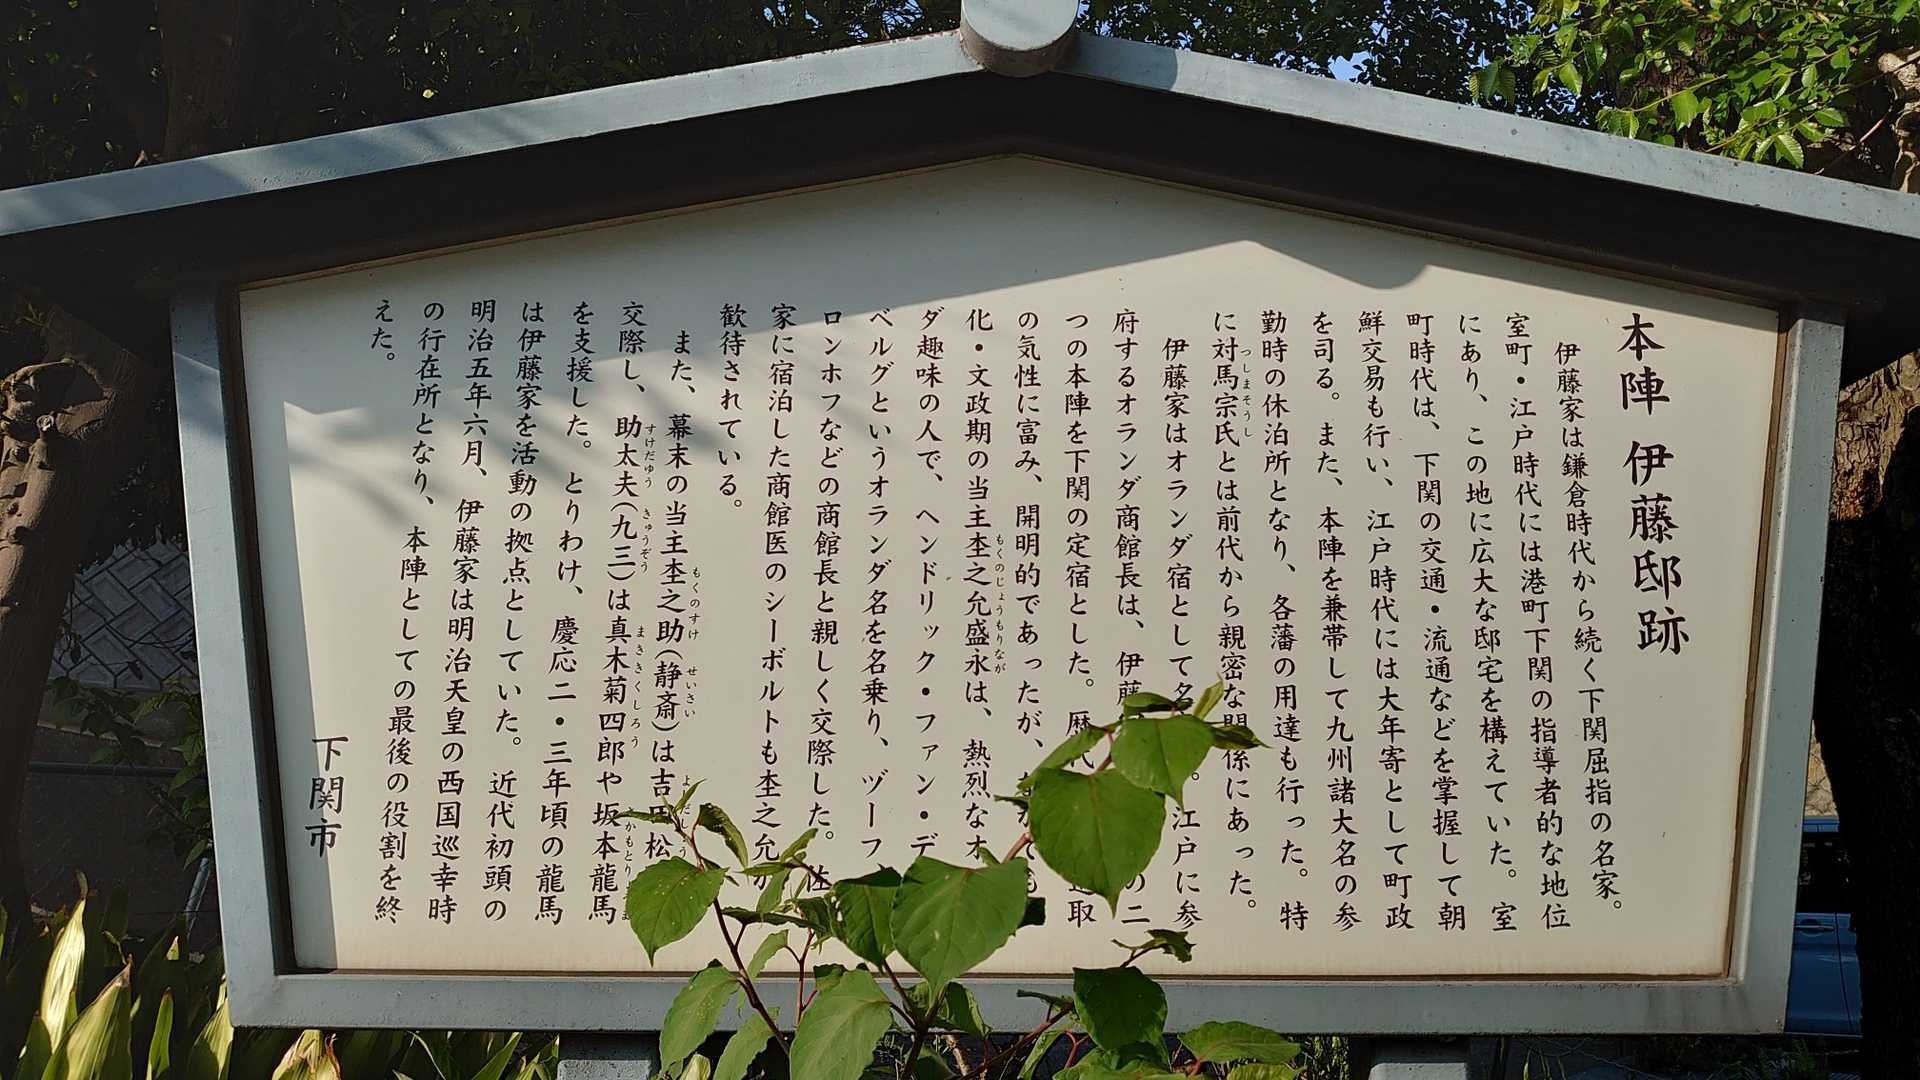 本陣 伊藤邸跡
伊藤家は鎌倉時代から続く下関屈指の名家。
室町・江戸時代には港町下関の指導者的な地位
にあり、この地に広大な邸宅を構えていた。室
町時代は、下関の交通・流通などを掌握して朝
鮮交易も行い、江戸時代には大年寄として町政
を司る。また、本陣を兼帯して九州諸大名の参
勤時の休泊所となり、各藩の用達も行った。特
に対馬宗氏とは前代から親密な関係にあった。
つしまそうし
伊藤家はオランダ宿として名 江戸に参
府するオランダ商館長は、伊藤 の二
つの本陣を下関の定宿とした。歴代 取
の気性に富み、開明的であったが、 も
化・文政期の当主杢之允盛永は、熱烈なオ
もくのじょうもりなが
ダ趣味の人で、ヘンドリック・ファン・デ
ベルグというオランダ名を名乗り、ヅーフ、
ロンホフなどの商館長と親しく交際した。
家に宿泊した商館医のシーボルトも杢之允
歓待されている。
また、幕末の当主杢之助(静斎)は吉田松
もくのすけ せいさい
交際し、助太夫(九三)は真木菊四郎や坂本龍馬
すけだゆう きゅうぞう まききくしろう
を支援した。とりわけ、慶応二・三年頃の龍馬
は伊藤家を活動の拠点としていた。近代初頭の
明治五年六月、伊藤家は明治天皇の西国巡幸時
の行在所となり、本陣としての最後の役割を終
えた。
下関市